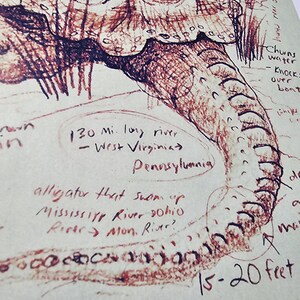 Churns
water
- knock
over
boat
130 Mi. long river
- West Virginia →
Pennsylvania
alligator that swam up
Mississippi River → Ohio
River → Mon. River?
15-20 feet